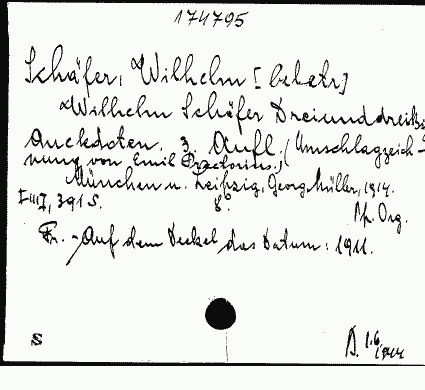 174795
Schäfer, Wilhelm [belletr]
Wilhelm Schäfer Dreiunddreißig
Anekdoten. 3. Aufl. (Umschlagzeich-
nung von Emil Praetorius.)
München u. Leipzig, Georg Müller, 1914.
391 S. 8°.
Org.
Fr. - Auf dem Deckel das Datum: 1911.
S